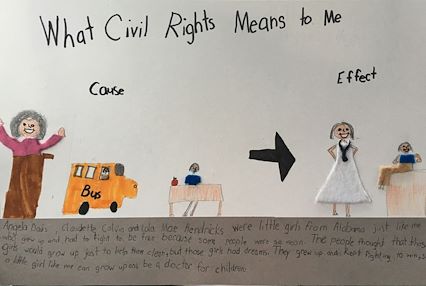 What Civil Rights Means to Me
Cause
Effect
Bus
Angela Davis, Claudette Colvin and Lola Mae Hendricks were little girls from Alabama just like me
who grew up and had to fight to be free because some people were so mean. The people thought that those
girls would grow up just to help them clean, but those girls had dreams. They grew up and kept fighting to win so
a little girl like me can grow up and be a doctor for children.